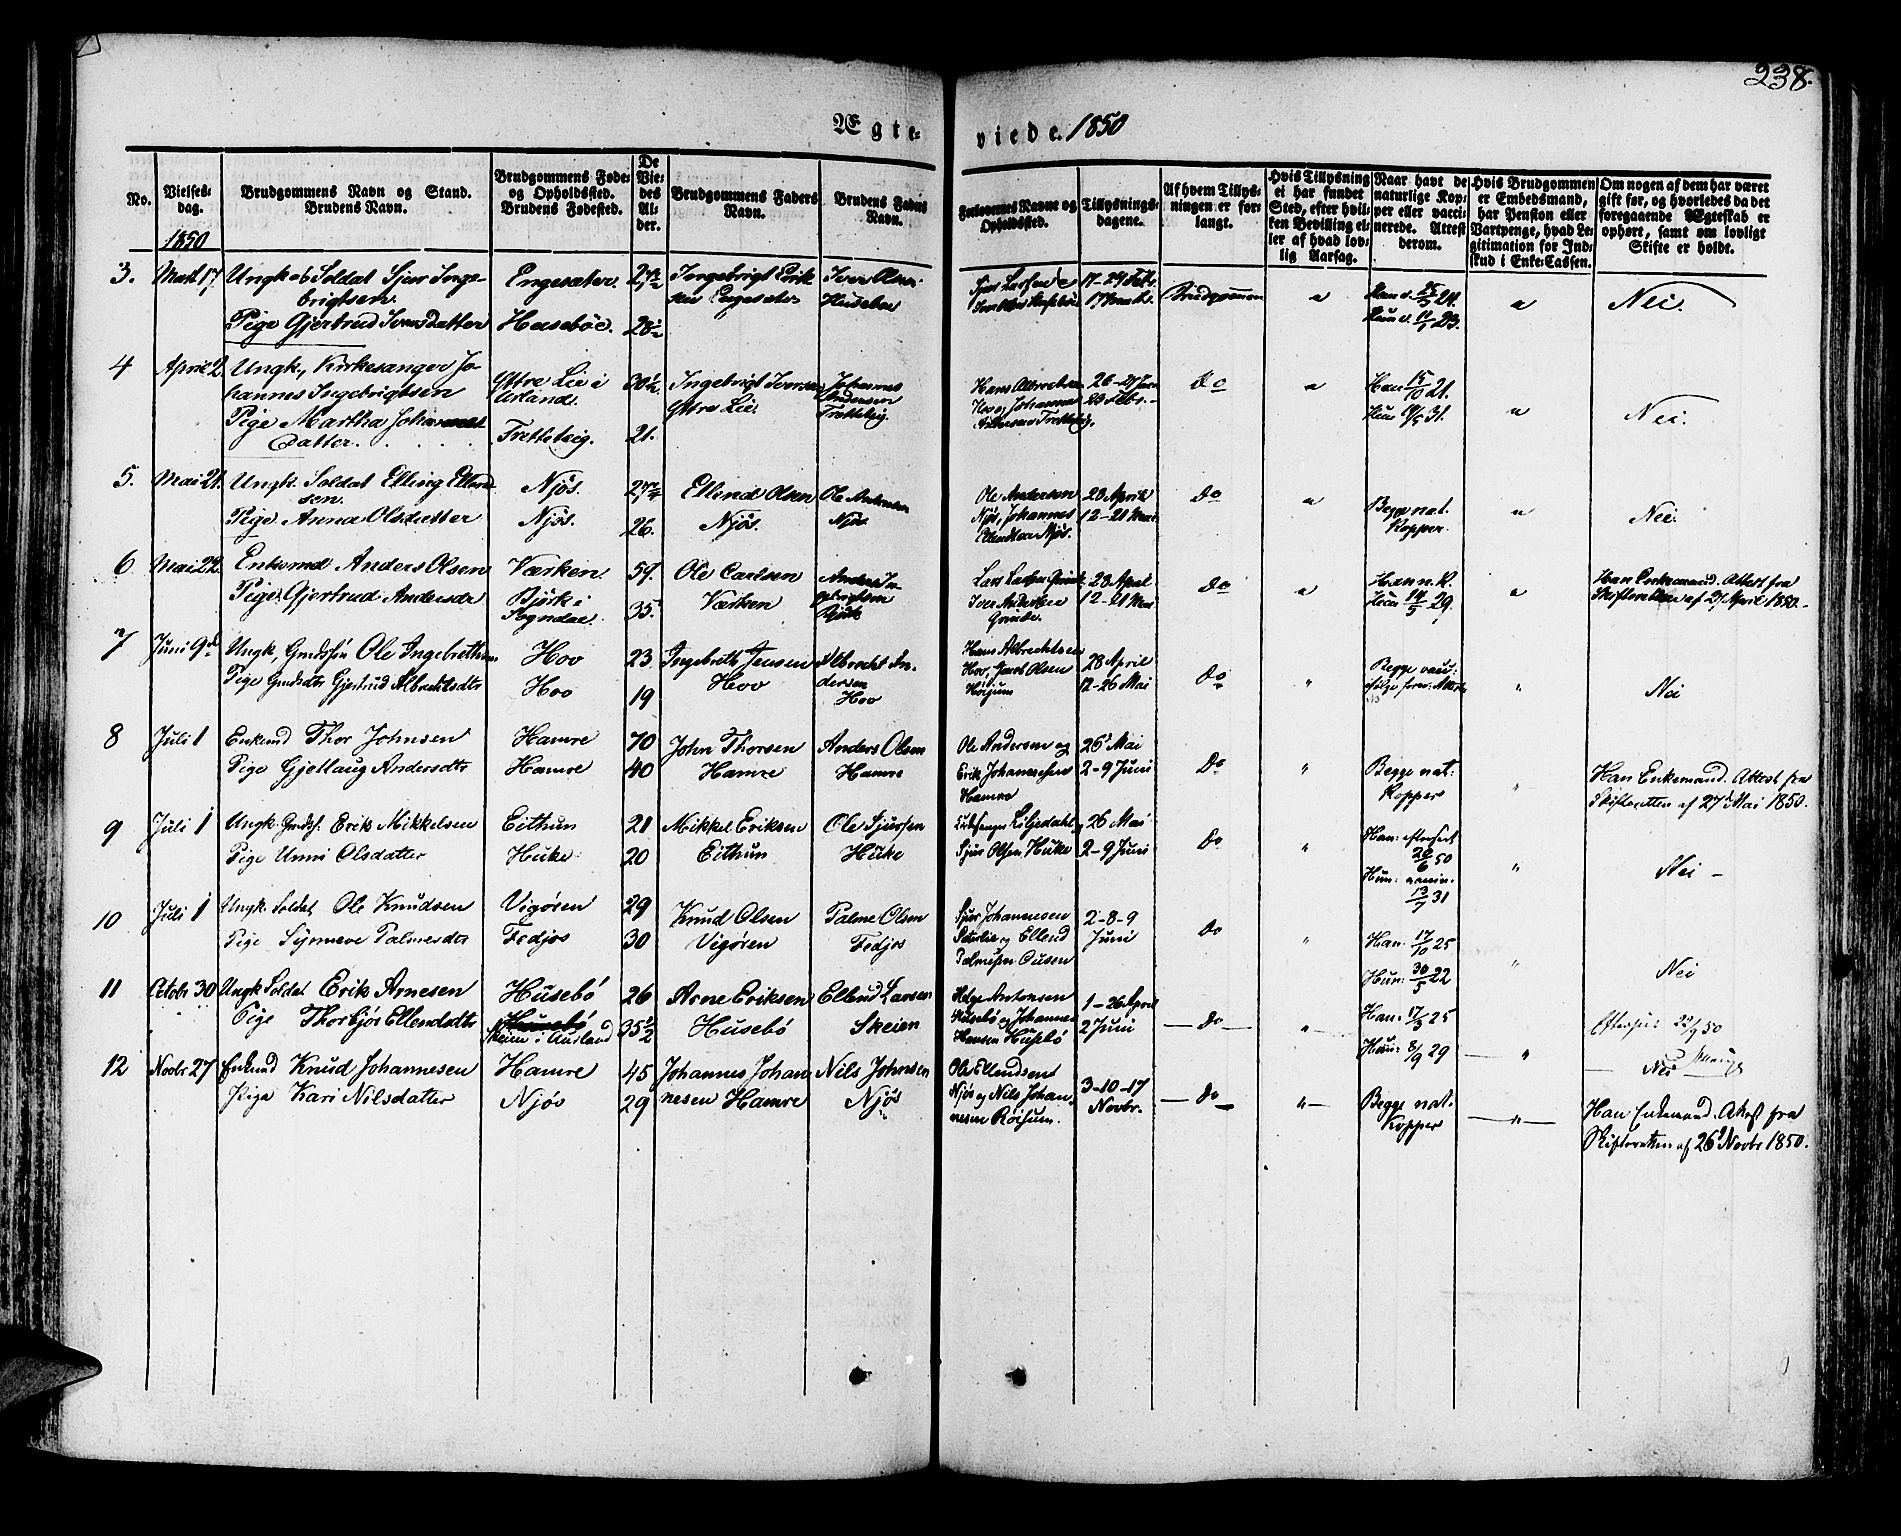 238.
Ægte-
viede. 1850
No.
Vielses-
dag.
1850
Brudgommens Navn og Stand.
Brudens Navn.
Brudgommens Føde-
og Opholdssted.
Brudens Fødested.
De
Vie-
des
Al-
der.
Brudgommens Faders
Navn.
Brudens Faders
Navn.
Forlovernes Navne og
Opholdssted.
Tillysnings-
dagene.
Af hvem Tillys-
ningen er for-
langt.
Hvis Tillysning
ei har fundet
Sted, efter hvil-
ken Bevilling el-
ler af hvad lov-
lig Aarsag.
Naar havt de
naturlige Kop-
per eller vacci-
nerede. Attest
derom.
Hvis Brudgommen
er Embedsmand,
har Pension eller
Vartpenge, hvad Le-
gitimation for Ind-
skud i Enke-Cassen.
Om nogen af dem har været
gift før, og hvorledes da det
foregaaende Ægteskab er
ophørt, samt om lovligt
Skifte er holdt.
3. Marts 17 Ungk. Soldat Sjur Inge-
brigtsen
Pige Gjertrud Iversdatter
Engesæter
Husebøe 28½
Ingebrigt Erik-
sen Engesæter
Iver Olsen
Husebøe
17-24 Febr.
Brudgommen
Nei.
4 April 2. Ungk., Kirkesanger Jo-
hannes Ingebrigtsen
Pige Martha Johannes-
datter.
Yttre Lie i
Urland.
Fretteteig.
30½
21.
Ingebrigt Iversen
Yttre Lie.
Johannes
Andersen
Do
Han 15/10 21.
31.
Nei.
5. Mai 21. Ungk. Soldat Elling Ellend-
sen.
Pige Anna Olsdatter
Njøs.
Njøs.
26.
Ellend Olsen
Njøs.
Ole Andersen
Njøs
Ole Andersen
Njøs, Johannes
28 April
12-21 Mai
Do
Begge nat.
Kopper.
Nei.
6 Mai 22. Enkemd Anders Olsen
Pige Gjertrud Andersdr
Værken.
Bjørk i
Sogndal.
59.
35.
Ole Carlsen
Værken
Anders In-
gebrigtsen
Bjørk
Iver Andersen
Grinde.
28 April
12-21 Mai
Do
Han n. K.
Hun 14/5 29.
Han Enkemand. Attest fra
Skifteretten af 27 April 1850.
7 Juni 9de Ungk, Gmdssøn Ole Ingebrethsen
Pige Gmdsdtr Gjertrud Albrechtsdtr
Hov
Hov
23
19
Ingebreth Jensen
Hov
Albrecht An-
dersen
Hov
Hans Albrechtsen
Hov, Jacob Olsen
28 April
12-26 Mai
Do
Nei
8 Juli 1 Enkemd Thor Johnsen
Pige Gjellaug Andersdtr
Hamre
Hamre
70
40
John Thorsen
Hamre
Anders Olsen
Hamre
Ole Andersen og
Erik Johannessen
Hamre
26 Mai
2-9 Juni
Do
Begge nat:
Kopper
Han Enkemand. Attest fra
Skifteretten af 27 Mai 1850.
9 Juli 1 Ungk. Gmdsf. Erik Mikkelsen
Pige Unni Olsdatter
Eithun
Huke
21
20
Mikkel Eriksen
Eithun
Ole Sjursen
Huke
Kirkesanger Liljedahl og
Sjur Olsen Huke
26 Mai
2-9 Juni
Do
Han:
26/6 50
Hun:
13/7 31
Nei -
10 Juli 1 Ungk. Soldat Ole Knudsen
Pige Synneve Palmesdtr
Vigøren
Fedjos
29
30
Knud Olsen
Vigøren
Palme Olsen
Fedjos
Sjur Johannesen
og Ellend
Palmesen
2-8-9
Juni
Do
Han: 17/10 25
Hun: 30/5 22
Nei
11 Octobr 30 Ungk Soldat Erik Arnesen
Pige Thorbjør Ellendsdtr
Husebó
Skeim i Aurland
26
35½
Arne Eriksen
Husebó
Ellend Larsen
Skeien
Helge Antonsen
Husebó og Johannes
Hansen Husebó
1-26 April
2 Juni
- Do -
Han: 17/5 25
Hun: 8/9 29
22/9 50
Nei
12 Novbr 27 Enkemd Knud Johannesen
Pige Kari Nilsdatter
Hamre
Njøs
45
29
Johannes Johan-
nesen Hamre
Nils Johnsen
Njøs
Ole Ellendsen
Njøs og Nils Johan-
nesen Röisum.
3-10-17
Novbr.
- Do -
Begge nat.
Kopper
Han Enkemand. Attest fra
Skifteretten af 26 Novbr 1850.